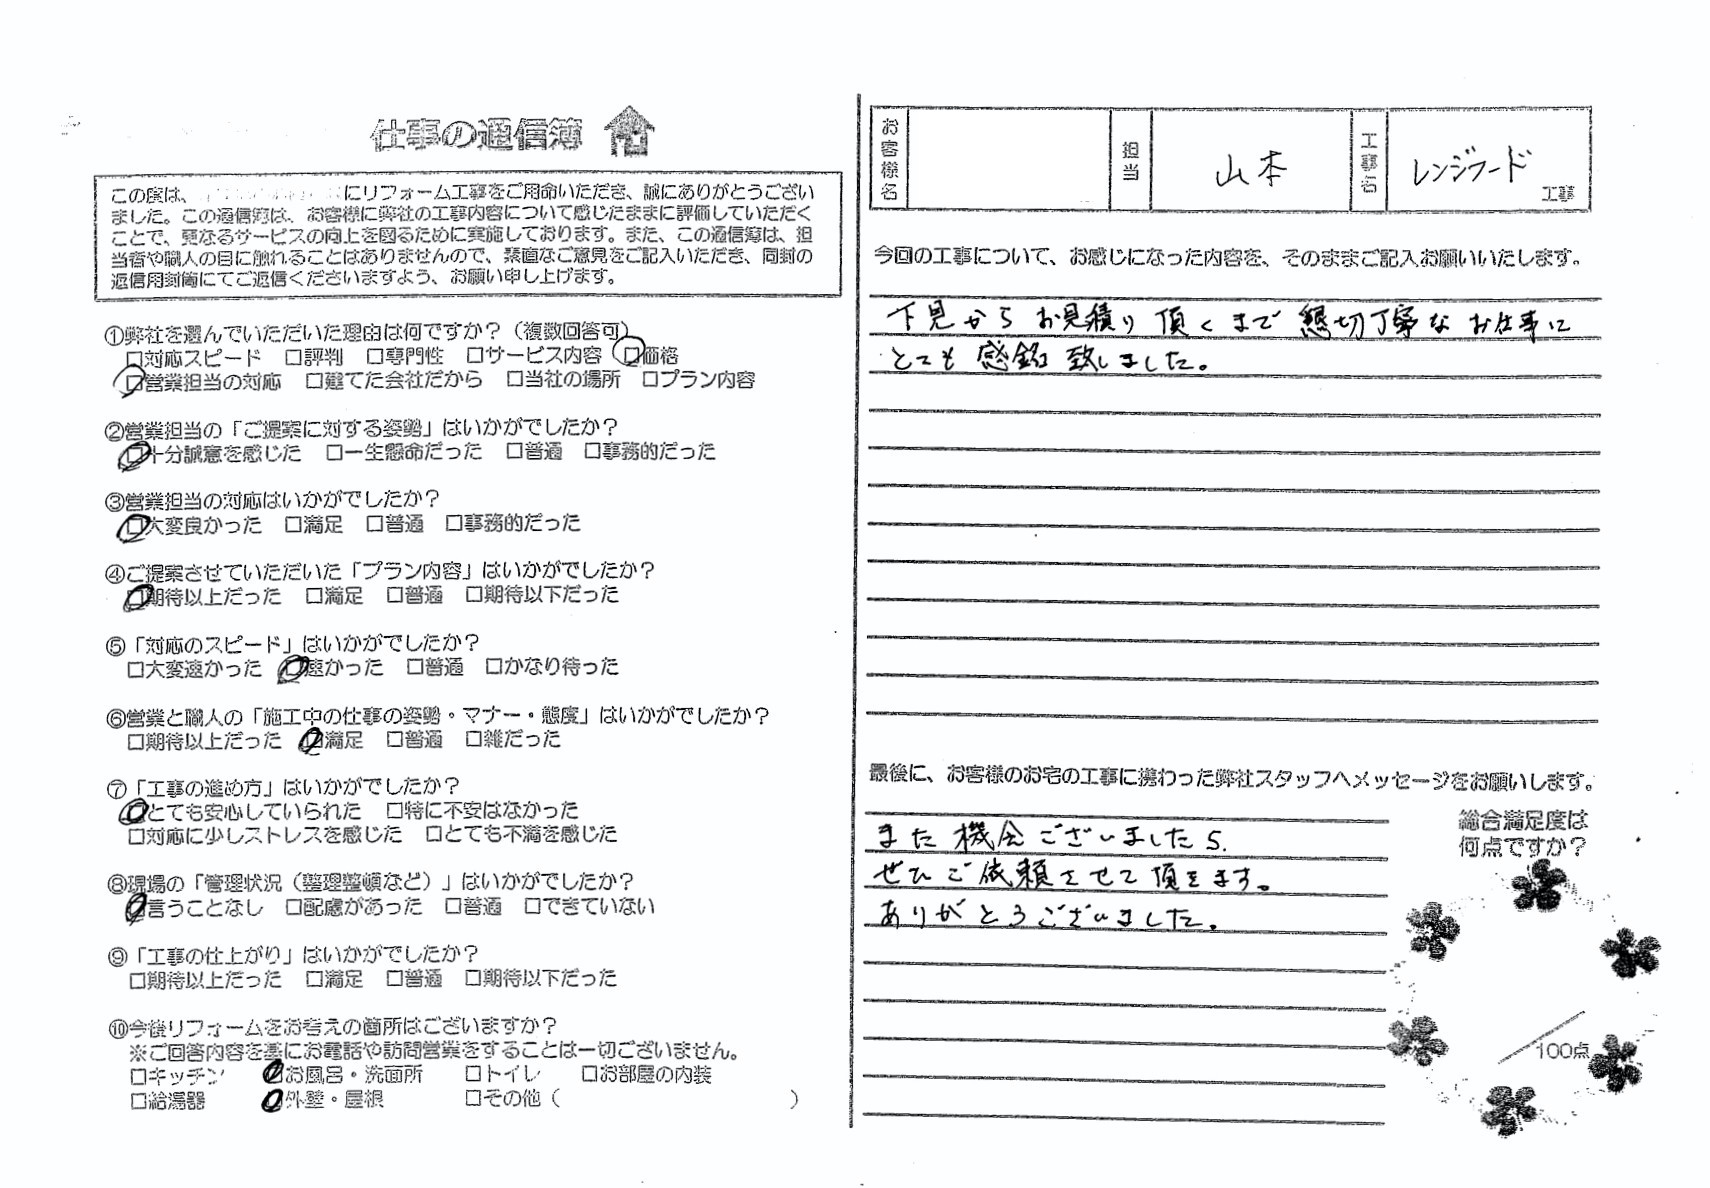 仕事の通信簿
この度は、
にリフォーム工事をご用命いただき、誠にありがとうござい
ました。この通信簿は、お客様に弊社の工事内容について感じたままに評価していただく
ことで、更なるサービスの向上を図るために実施しております。また、この通信簿は、担
当者や職人の目に触れることはありませんので、率直なご意見をご記入いただき、同封の
返信用封筒にてご返信くださいますよう、お願い申し上げます。
①弊社を選んでいただいた理由は何ですか？（複数回答可）
□対応スピード □評判 □専門性 □サービス内容 □価格
□営業担当の対応 □建てた会社だから □当社の場所 □プラン内容
②営業担当の「ご提案に対する姿勢」はいかがでしたか？
□十分誠意を感じた □一生懸命だった □普通 □事務的だった
③営業担当の対応はいかがでしたか？
□大変良かった □満足 □普通 □事務的だった
④ご提案させていただいた「プラン内容」はいかがでしたか？
□期待以上だった □満足 □普通 □期待以下だった
⑤「対応のスピード」はいかがでしたか？
□大変速かった □速かった □普通 □かなり待った
⑥営業と職人の「施工中の仕事の姿勢・マナー・態度」はいかがでしたか？
□期待以上だった □満足 □普通 □雑だった
⑦「工事の進め方」はいかがでしたか？
□とても安心していられた □特に不安はなかった
□対応に少しストレスを感じた □とても不満を感じた
⑧現場の「管理状況（整理整頓など）」はいかがでしたか？
□言うことなし □配慮があった □普通 □できていない
⑨「工事の仕上がり」はいかがでしたか？
□期待以上だった □満足 □普通 □期待以下だった
⑩今後リフォームをお考えの箇所はございますか？
※ご回答内容を基にお電話や訪問営業をすることは一切ございません。
□キッチン □お風呂・洗面所 □トイレ □お部屋の内装
□給湯器 □外壁・屋根 □その他（ ）
お客様名
担当
山本
工事名
レンジフード
工事
今回の工事について、お感じになった内容を、そのままご記入お願いいたします。
下見からお見積り頂くまで懇切丁寧なお仕事に
とても感銘致しました。
最後に、お客様のお宅の工事に携わった弊社スタッフへメッセージをお願いします。
また機会ございましたら、
ぜひご依頼させて頂きます。
ありがとうございました。
総合満足度は
何点ですか？
100点